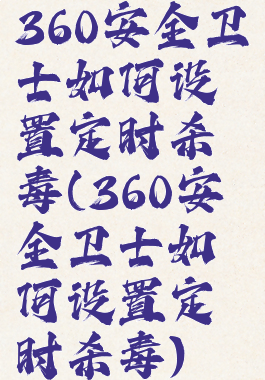 360安全卫
士如何设
置定时杀
毒(360安
全卫士如
何设置定
时杀毒)